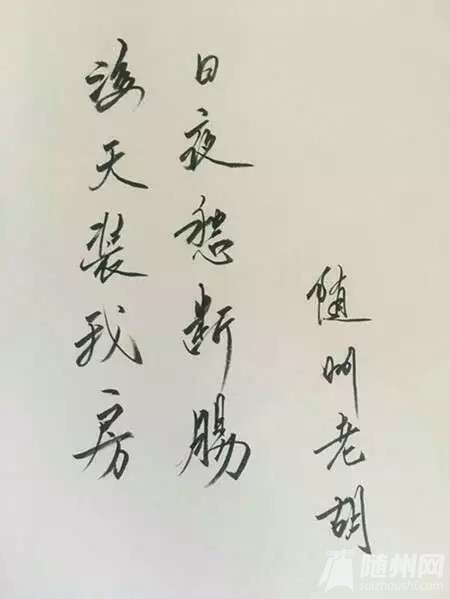 海天装我房
日夜愁断腸
随州老胡
随州网
suizhoushi.com